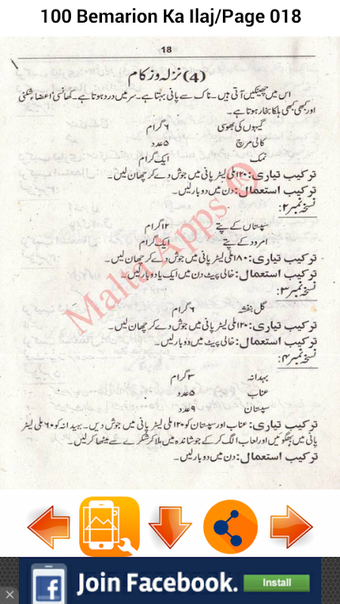 100 Bemarion Ka Ilaj/Page 018
18
(4) نزلہ و زکام
اس میں چھینکیں آتی ہیں۔ ناک سے پانی بہتا ہے۔ سر میں درد ہوتا ہے۔ کھانسی اعضاء شکنی
اور کبھی کبھی ہلکا بخار ہوتا ہے۔
گیہوں کی بھوسی ۶ گرام
کالی مرچ ۵ عدد
نمک ایک گرام
ترکیب تیاری: ۱۲۰ ملی لیٹر پانی میں جوش دے کر چھان لیں۔
ترکیب استعمال: دن میں دو بار لیں۔
نسخہ نمبر ۲:
سپستاں کے پتے ۱۲ گرام
امرود کے پتے ایک گرام
ترکیب تیاری: ۱۸۰ ملی لیٹر پانی میں جوش دے کر چھان لیں۔
ترکیب استعمال: خالی پیٹ دن میں ایک یا دو بار لیں۔
نسخہ نمبر ۳:
گل بنفشہ ۶ گرام
ترکیب تیاری: ۱۲۰ ملی لیٹر پانی میں جوش دے کر چھان لیں۔
ترکیب استعمال: خالی پیٹ میں دو بار لیں۔
نسخہ نمبر ۴:
بہدانہ ۳ گرام
عناب ۵ عدد
سپستان ۹ عدد
ترکیب تیاری: عناب اور سپستان کو ۱۲۰ ملی لیٹر پانی میں جوش دیں۔ بہیدانہ کو ۶۰ ملی لیٹر
پانی میں بھگوئیں اور لعاب الگ کر کے جوشاندہ میں ملا کر شکر سے میٹھا کر لیں۔
ترکیب استعمال: دن میں دو بار لیں۔
Malta Apps ©
Join Facebook.
Install